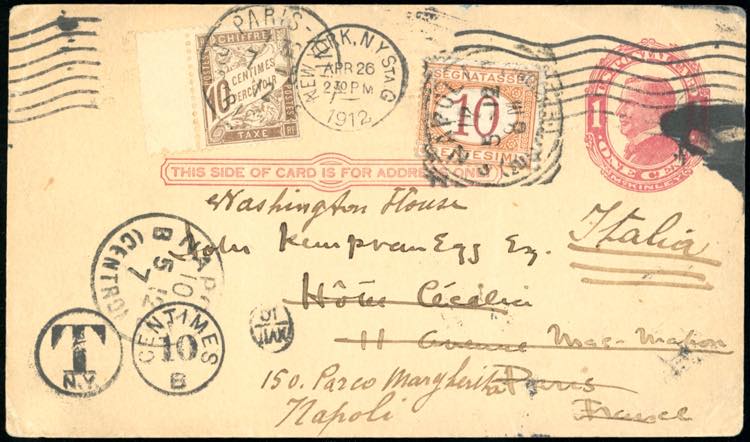 PARIS
CHIFFRE
10
CENTIMES
À
PERCEVOIR
POSTES
TAXE
RF
NEW YORK, N.Y. STA G
APR 26
2 30 PM
1912
SEGNATASSE
10
CENTESIMI
1
ONE CENT
McKINLEY
THIS SIDE OF CARD IS FOR ADDRESS ONLY
Washington House
John Kemp van Egg Ez.
Italia
Hôtel Cécilia
11 Avenue Mac-Mahon
150. Parco Margherita Paris
Napoli France
NAP
10
5 12
7
B
(CENTRO)
T
N.Y.
CENTIMES
10
B